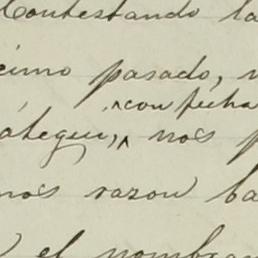 Contestando la
cimo pasado, n
^con fecha
átegui,^ nos p
nos razon ba
el nombram